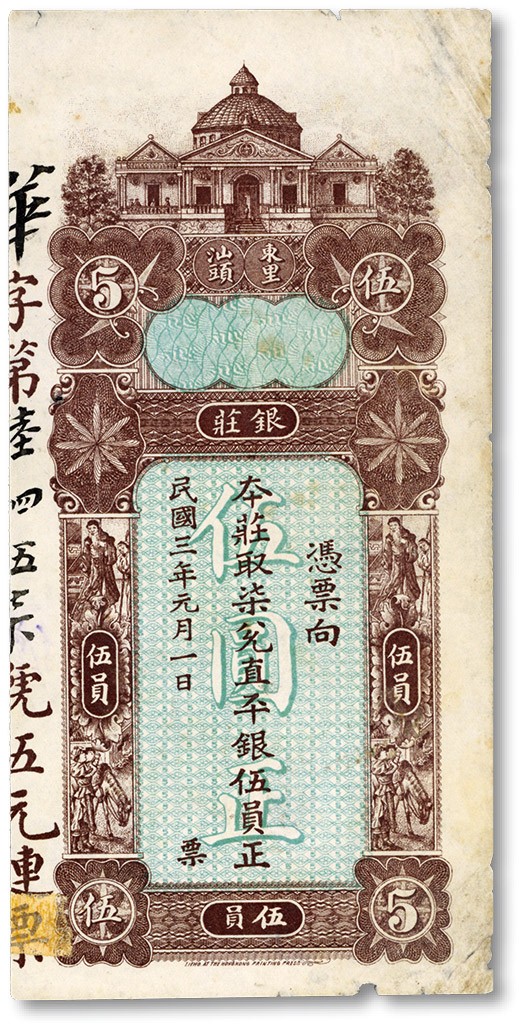 東里
汕頭
5
伍
銀莊
憑票向
本莊取柒兌直平銀伍員正
伍圓正
民國三年元月一日
票
伍員
伍員
伍
5
伍員
華字第陸四五柒號五元連票
LITHO AT THE HONGKONG PRINTING PRESS